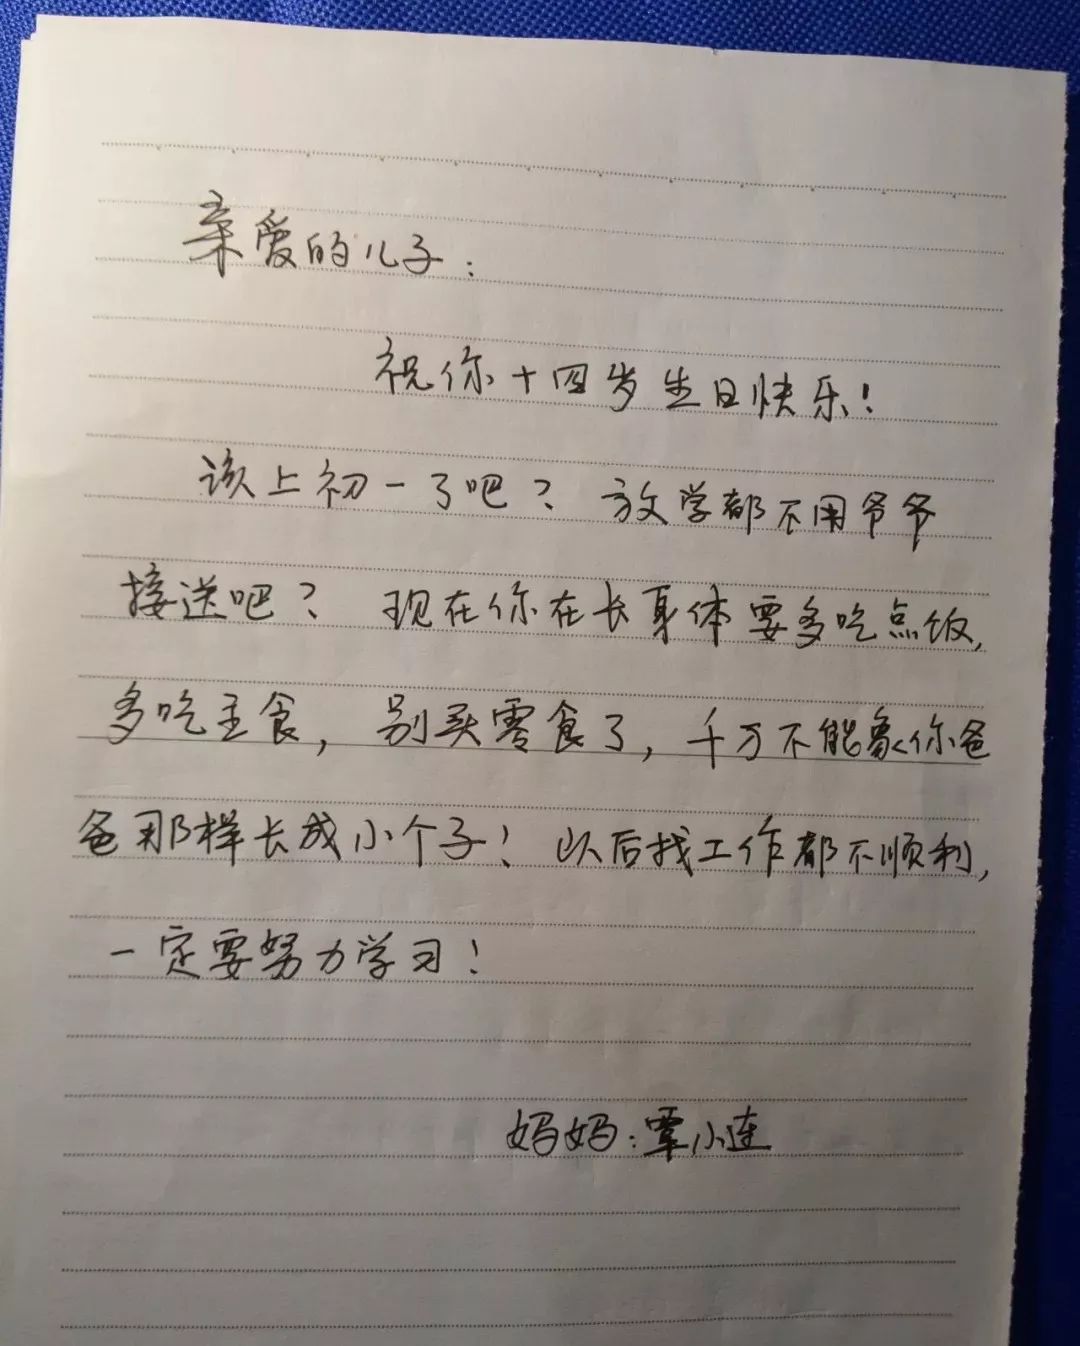 亲爱的儿子:
祝你十四岁生日快乐!
该上初一了吧? 放学都不用爷爷
接送吧? 现在你在长身体要多吃点饭,
多吃主食, 别买零食了, 千万不能象你爸
爸那样长成小个子! 以后找工作都不顺利,
一定要努力学习!
妈妈:覃小连